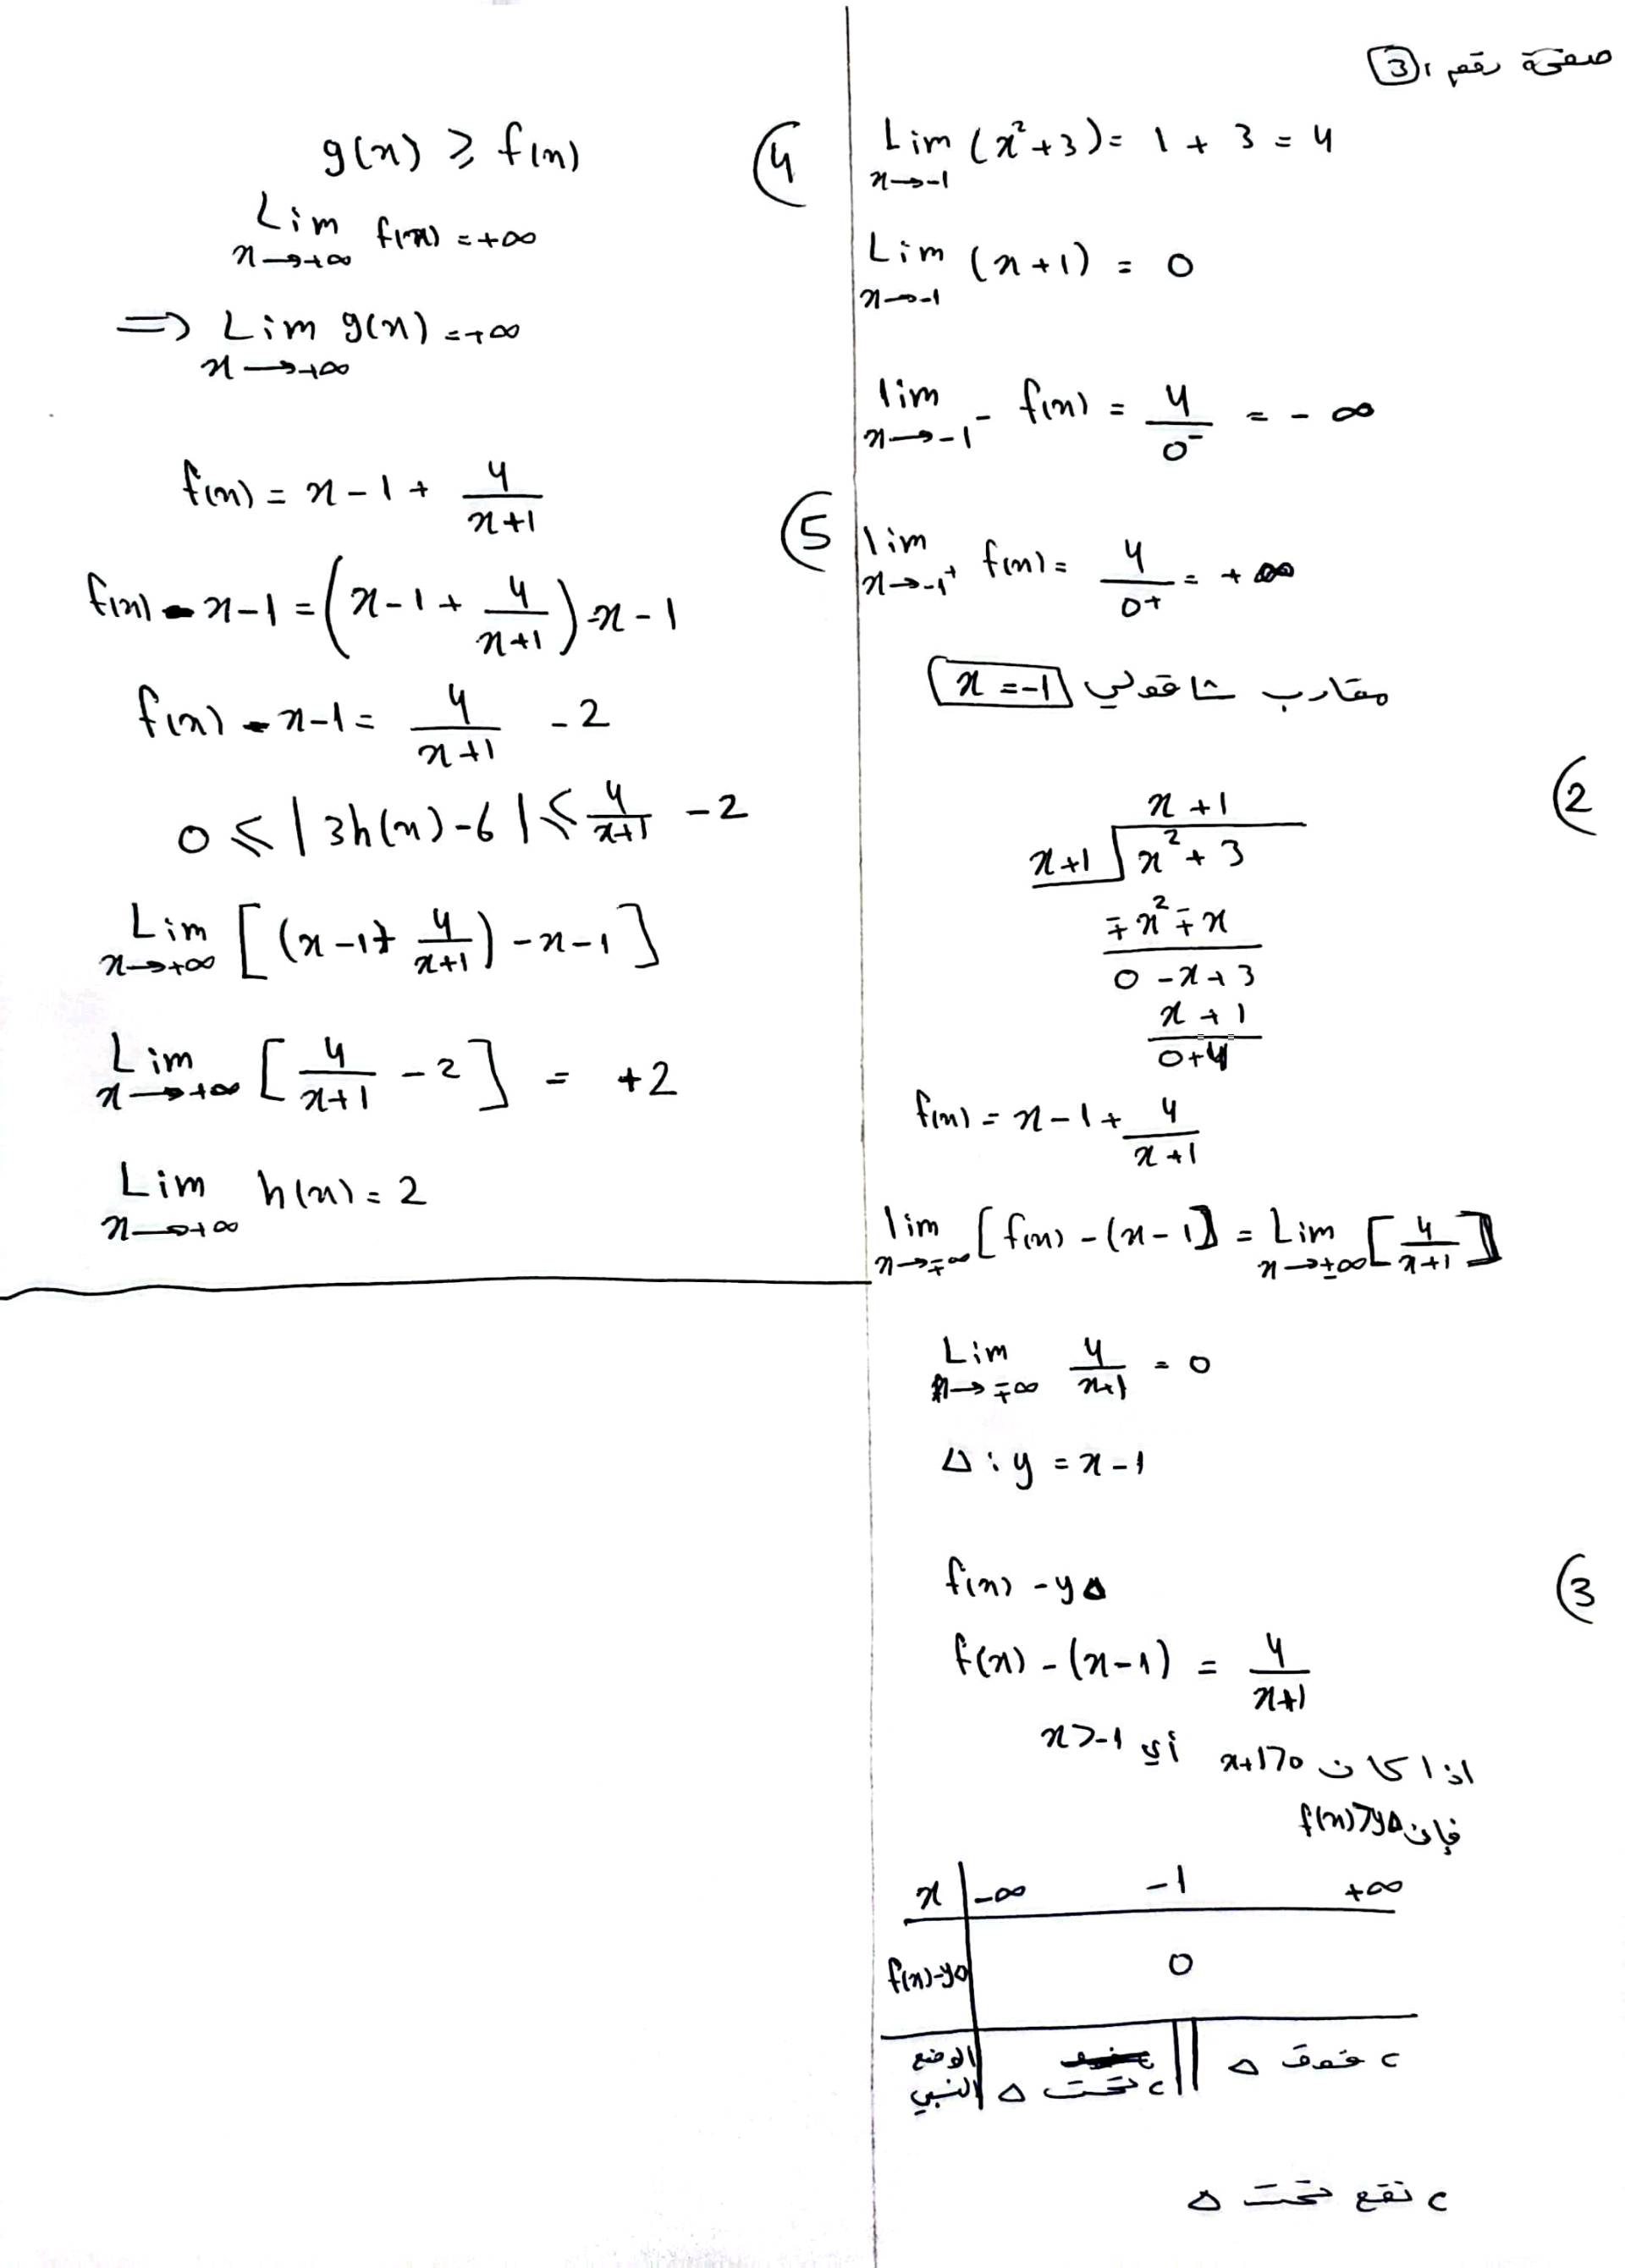 صفحة رقم: 3
Lim (x²+3) = 1 + 3 = 4
x→-1
Lim (x+1) = 0
x→-1
lim f(x) = 4/0⁻ = - ∞
x→-1⁻
lim f(x) = 4/0+ = + ∞
x→-1⁺
مقارب شاقولي x = -1
2
x + 1
x+1 x² + 3
∓ x² ∓ x
0 - x + 3
x + 1
0 + 4
f(x) = x - 1 + 4/(x+1)
lim [f(x) - (x - 1)] = Lim [4/(x+1)]
x→∓∞ x→±∞
Lim 4/(x+1) = 0
x→∓∞
Δ : y = x - 1
3
f(x) - yΔ
f(x) - (x-1) = 4/(x+1)
اذا كان x+1>0 أي x>-1
فإن f(x)>yΔ
x -∞ -1 +∞
f(x)-yΔ 0
الوضع النسبي c تحت Δ c فوق Δ
c تقع تحت Δ
4
g(x) ⩾ f(x)
Lim f(x) = +∞
x→+∞
=> Lim g(x) = +∞
x→+∞
5
f(x) = x - 1 + 4/(x+1)
f(x) - x - 1 = (x - 1 + 4/(x+1)) - x - 1
f(x) - x - 1 = 4/(x+1) - 2
0 ⩽ | 3h(x) - 6 | ⩽ 4/(x+1) - 2
Lim [(x - 1 + 4/(x+1)) - x - 1]
x→+∞
Lim [4/(x+1) - 2] = +2
x→+∞
Lim h(x) = 2
x→+∞